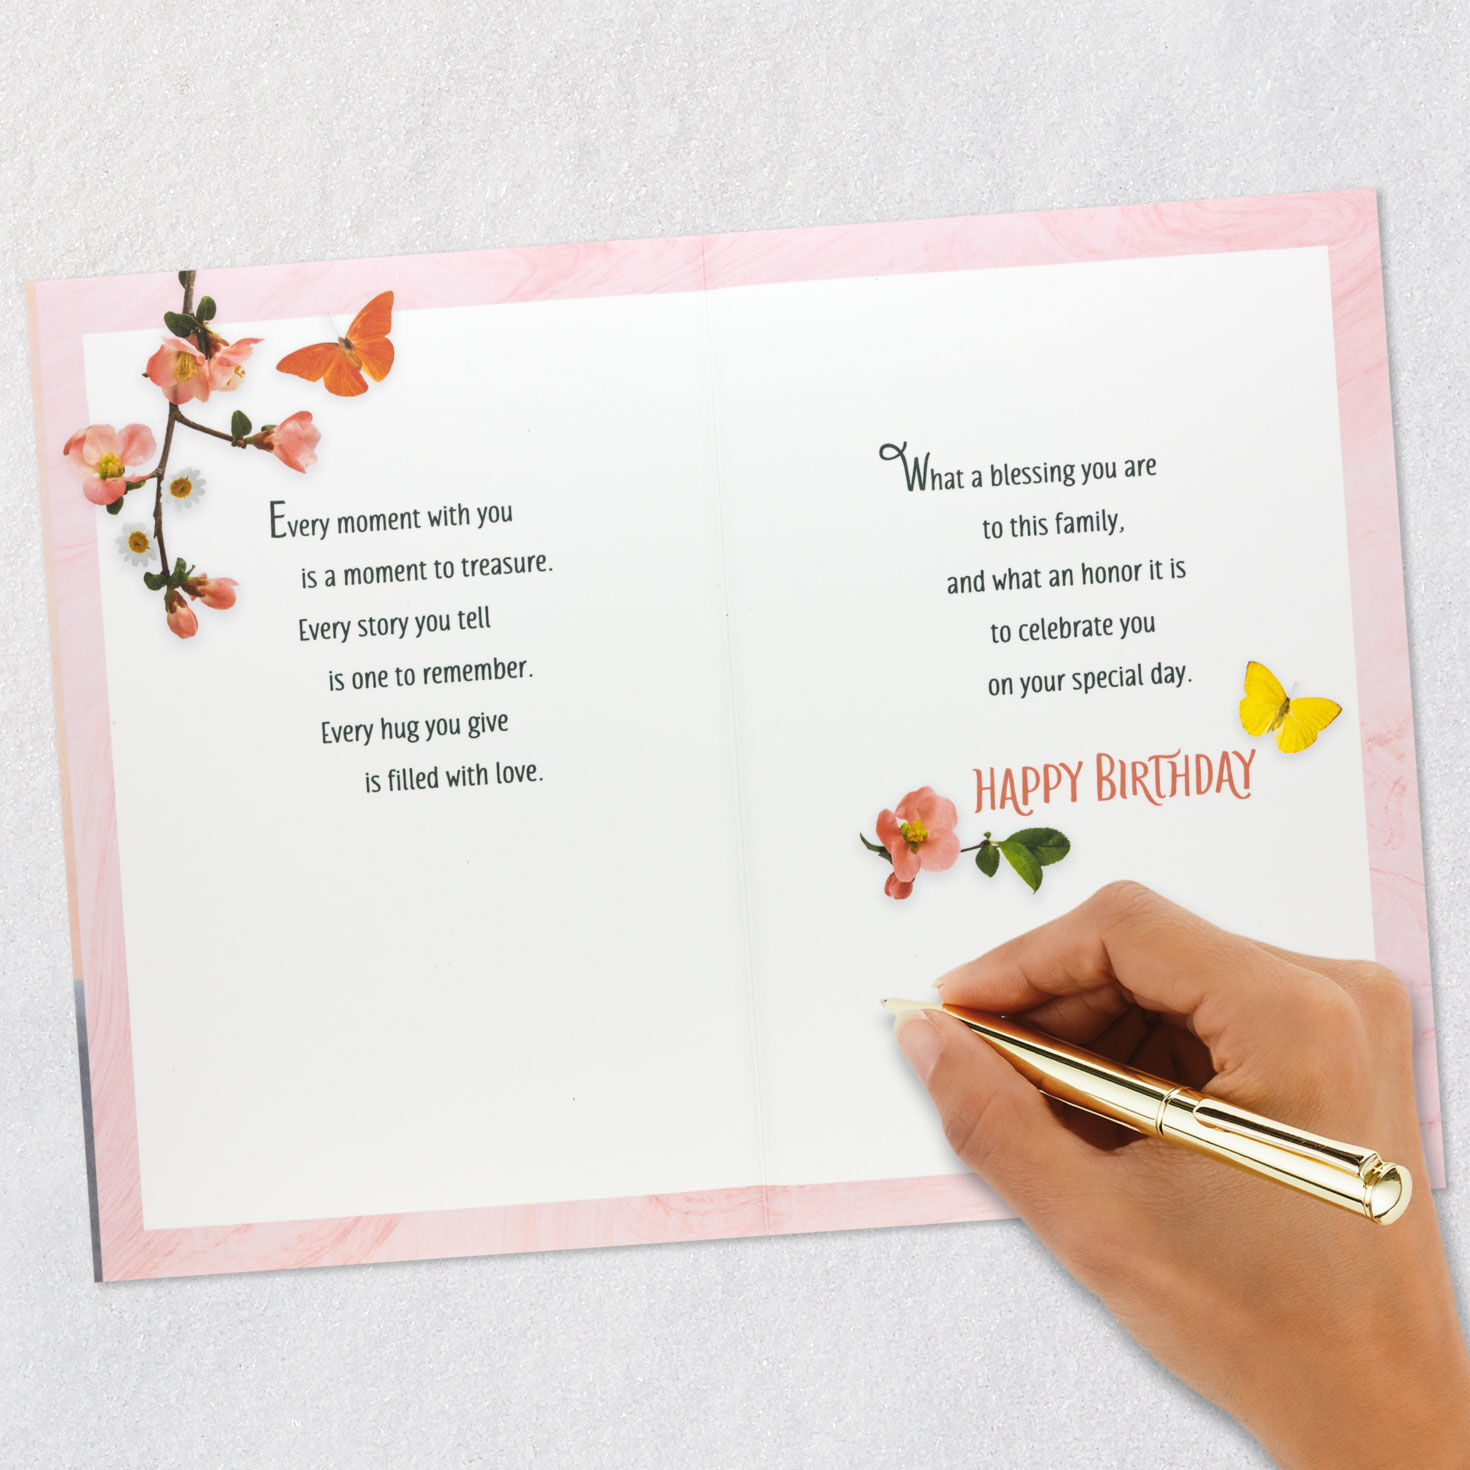 Every moment with you
is a moment to treasure.
Every story you tell
is one to remember.
Every hug you give
is filled with love.
What a blessing you are
to this family,
and what an honor it is
to celebrate you
on your special day.
HAPPY BIRTHDAY